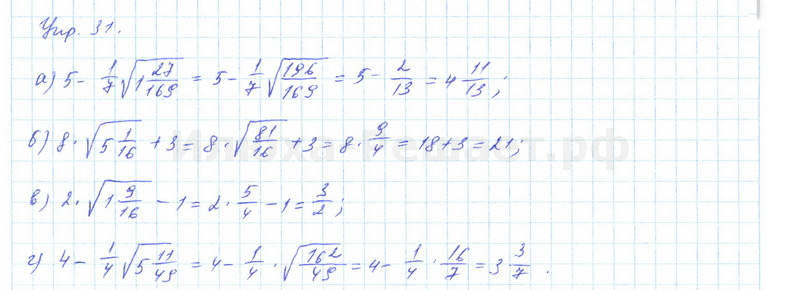 Упр. 31.
а) 5 - 1/7 √(1 27/169) = 5 - 1/7 √(196/169) = 5 - 2/13 = 4 11/13;
б) 8 · √(5 1/16) + 3 = 8 · √(81/16) + 3 = 8 · 9/4 = 18 + 3 = 21;
в) 2 · √(1 9/16) - 1 = 2 · 5/4 - 1 = 3/2;
г) 4 - 1/4 √(5 11/49) = 4 - 1/4 · √(162/49) = 4 - 1/4 · 16/7 = 3 3/7.